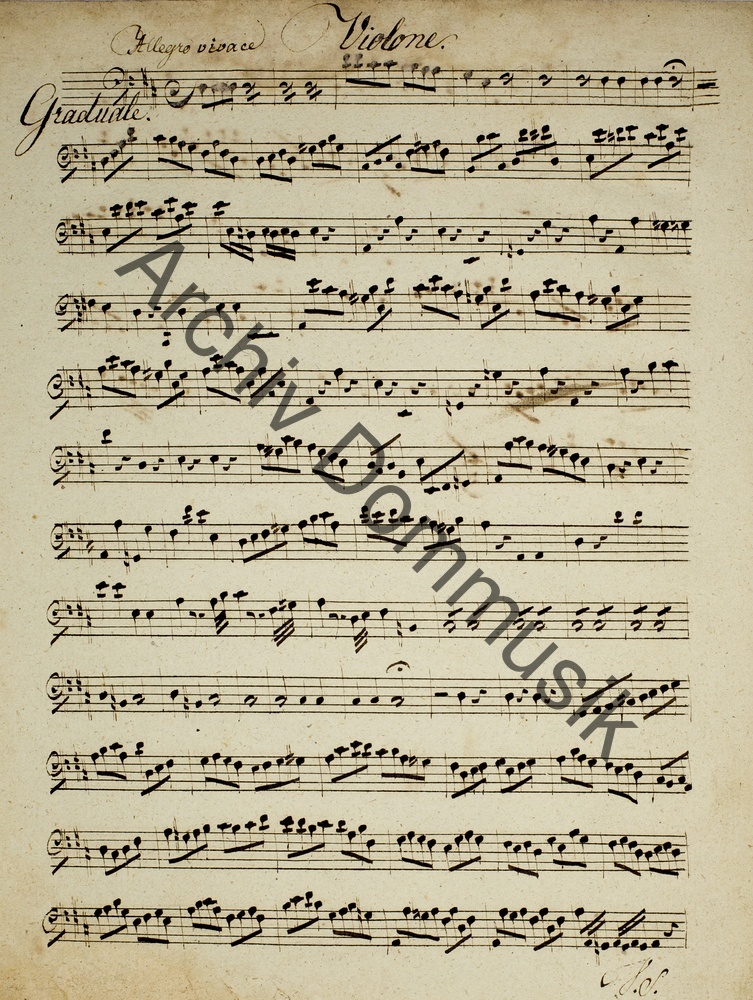 Allegro vivace Violone.
Graduale.
Archiv Dommusik
V.S.